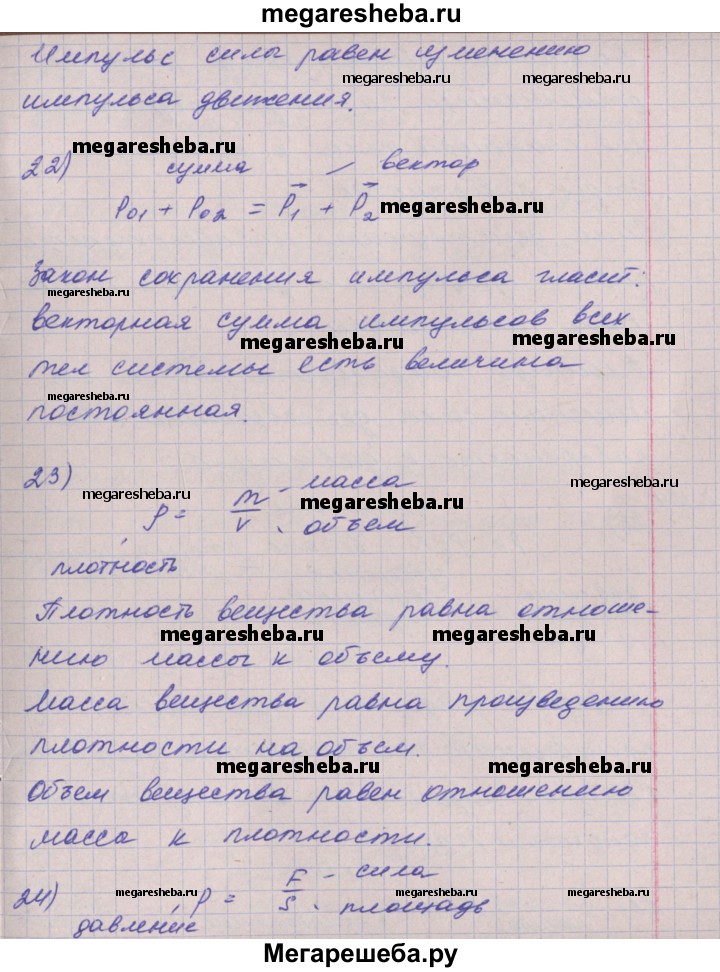 megaresheba.ru
Импульс силы равен изменению
megaresheba.ru megaresheba.ru
импульса движения.
megaresheba.ru
22) сумма вектор
P01 + P02 = P⃗1 + P⃗2 megaresheba.ru
Закон сохранения импульса гласит:
megaresheba.ru
векторная сумма импульсов всех
megaresheba.ru megaresheba.ru
тел системы есть величина
постоянная.
23) - масса
megaresheba.ru megaresheba.ru megaresheba.ru
ρ = m/V - объем
плотность
Плотность вещества равна отноше-
megaresheba.ru megaresheba.ru
нию массы к объему.
Масса вещества равна произведению
плотности на объем.
megaresheba.ru megaresheba.ru
Объем вещества равен отношению
масса к плотности.
24) p = F/S - сила
megaresheba.ru megaresheba.ru megaresheba.ru
давление - площадь
Мегарешеба.ру